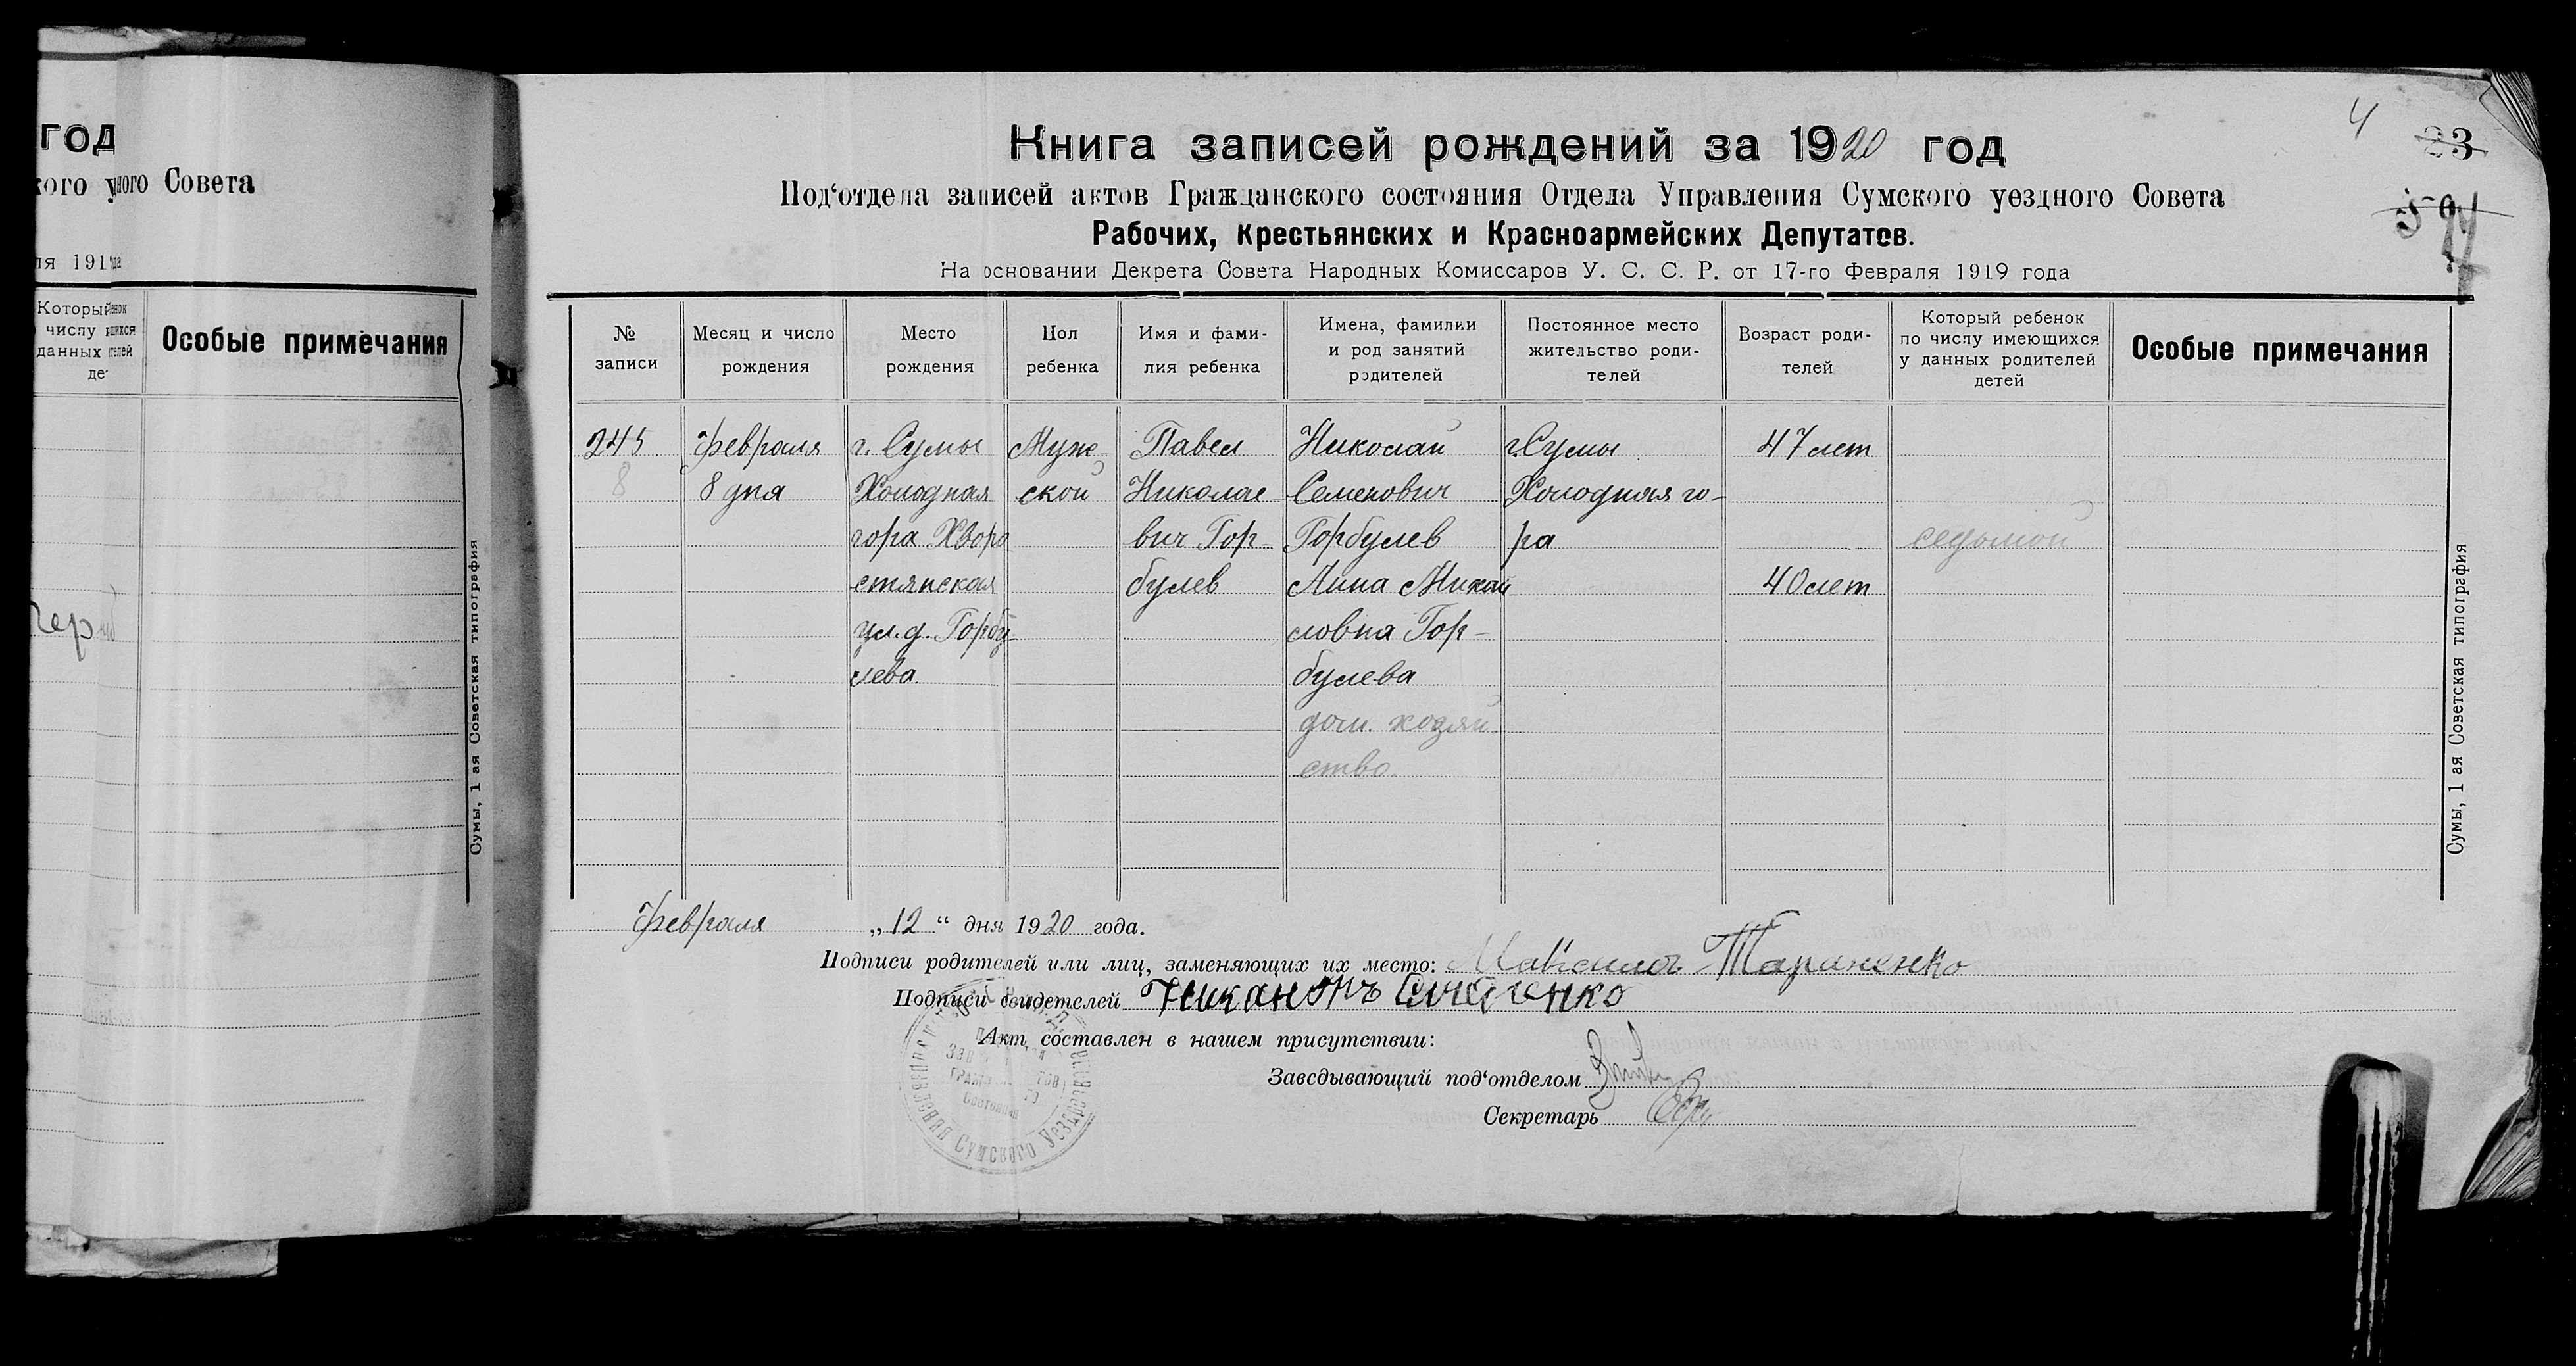 год
кого уездного Совета
Особые примечания
Сумы, 1 ая Советская типография
4
23
Книга записей рождений за 1920 год
Под‘отдела записей актов Гражданского состояния Отдела Управления Сумского уездного Совета
Рабочих, Крестьянских и Красноармейских Депутатов.
На основании Декрета Совета Народных Комиссаров У. С. С. Р. от 17-го Февраля 1919 года
№ записи
Месяц и число рождения
Место рождения
Пол ребенка
Имя и фами-
лия ребенка
Имена, фамилии
и род занятий
родителей
Постоянное место
жительство роди-
телей
Возраст роди-
телей
Который ребенок
по числу имеющихся
у данных родителей
детей
Особые примечания
245
8
февраля
8 дня
г. Сумы
Холодная
гора Хворо
стянская
ул. д. Горбу-
лева
Муж-
ской
Павел
Николае
вич Гор-
булев
Николай
Семенович
Горбулев
Анна Михай
ловна Гор-
булева
дом. хозяй-
ство.
г. Сумы
Холодная го-
ра
47 лет
40 лет
седьмой
Сумы, 1 ая Советская типография
февраля „12“ дня 1920 года.
Подписи родителей или лиц, заменяющих их место: Тараненко
Подписи свидетелей
Акт составлен в нашем присутствии:
Заведывающий под‘отделом
Секретарь
Сумского